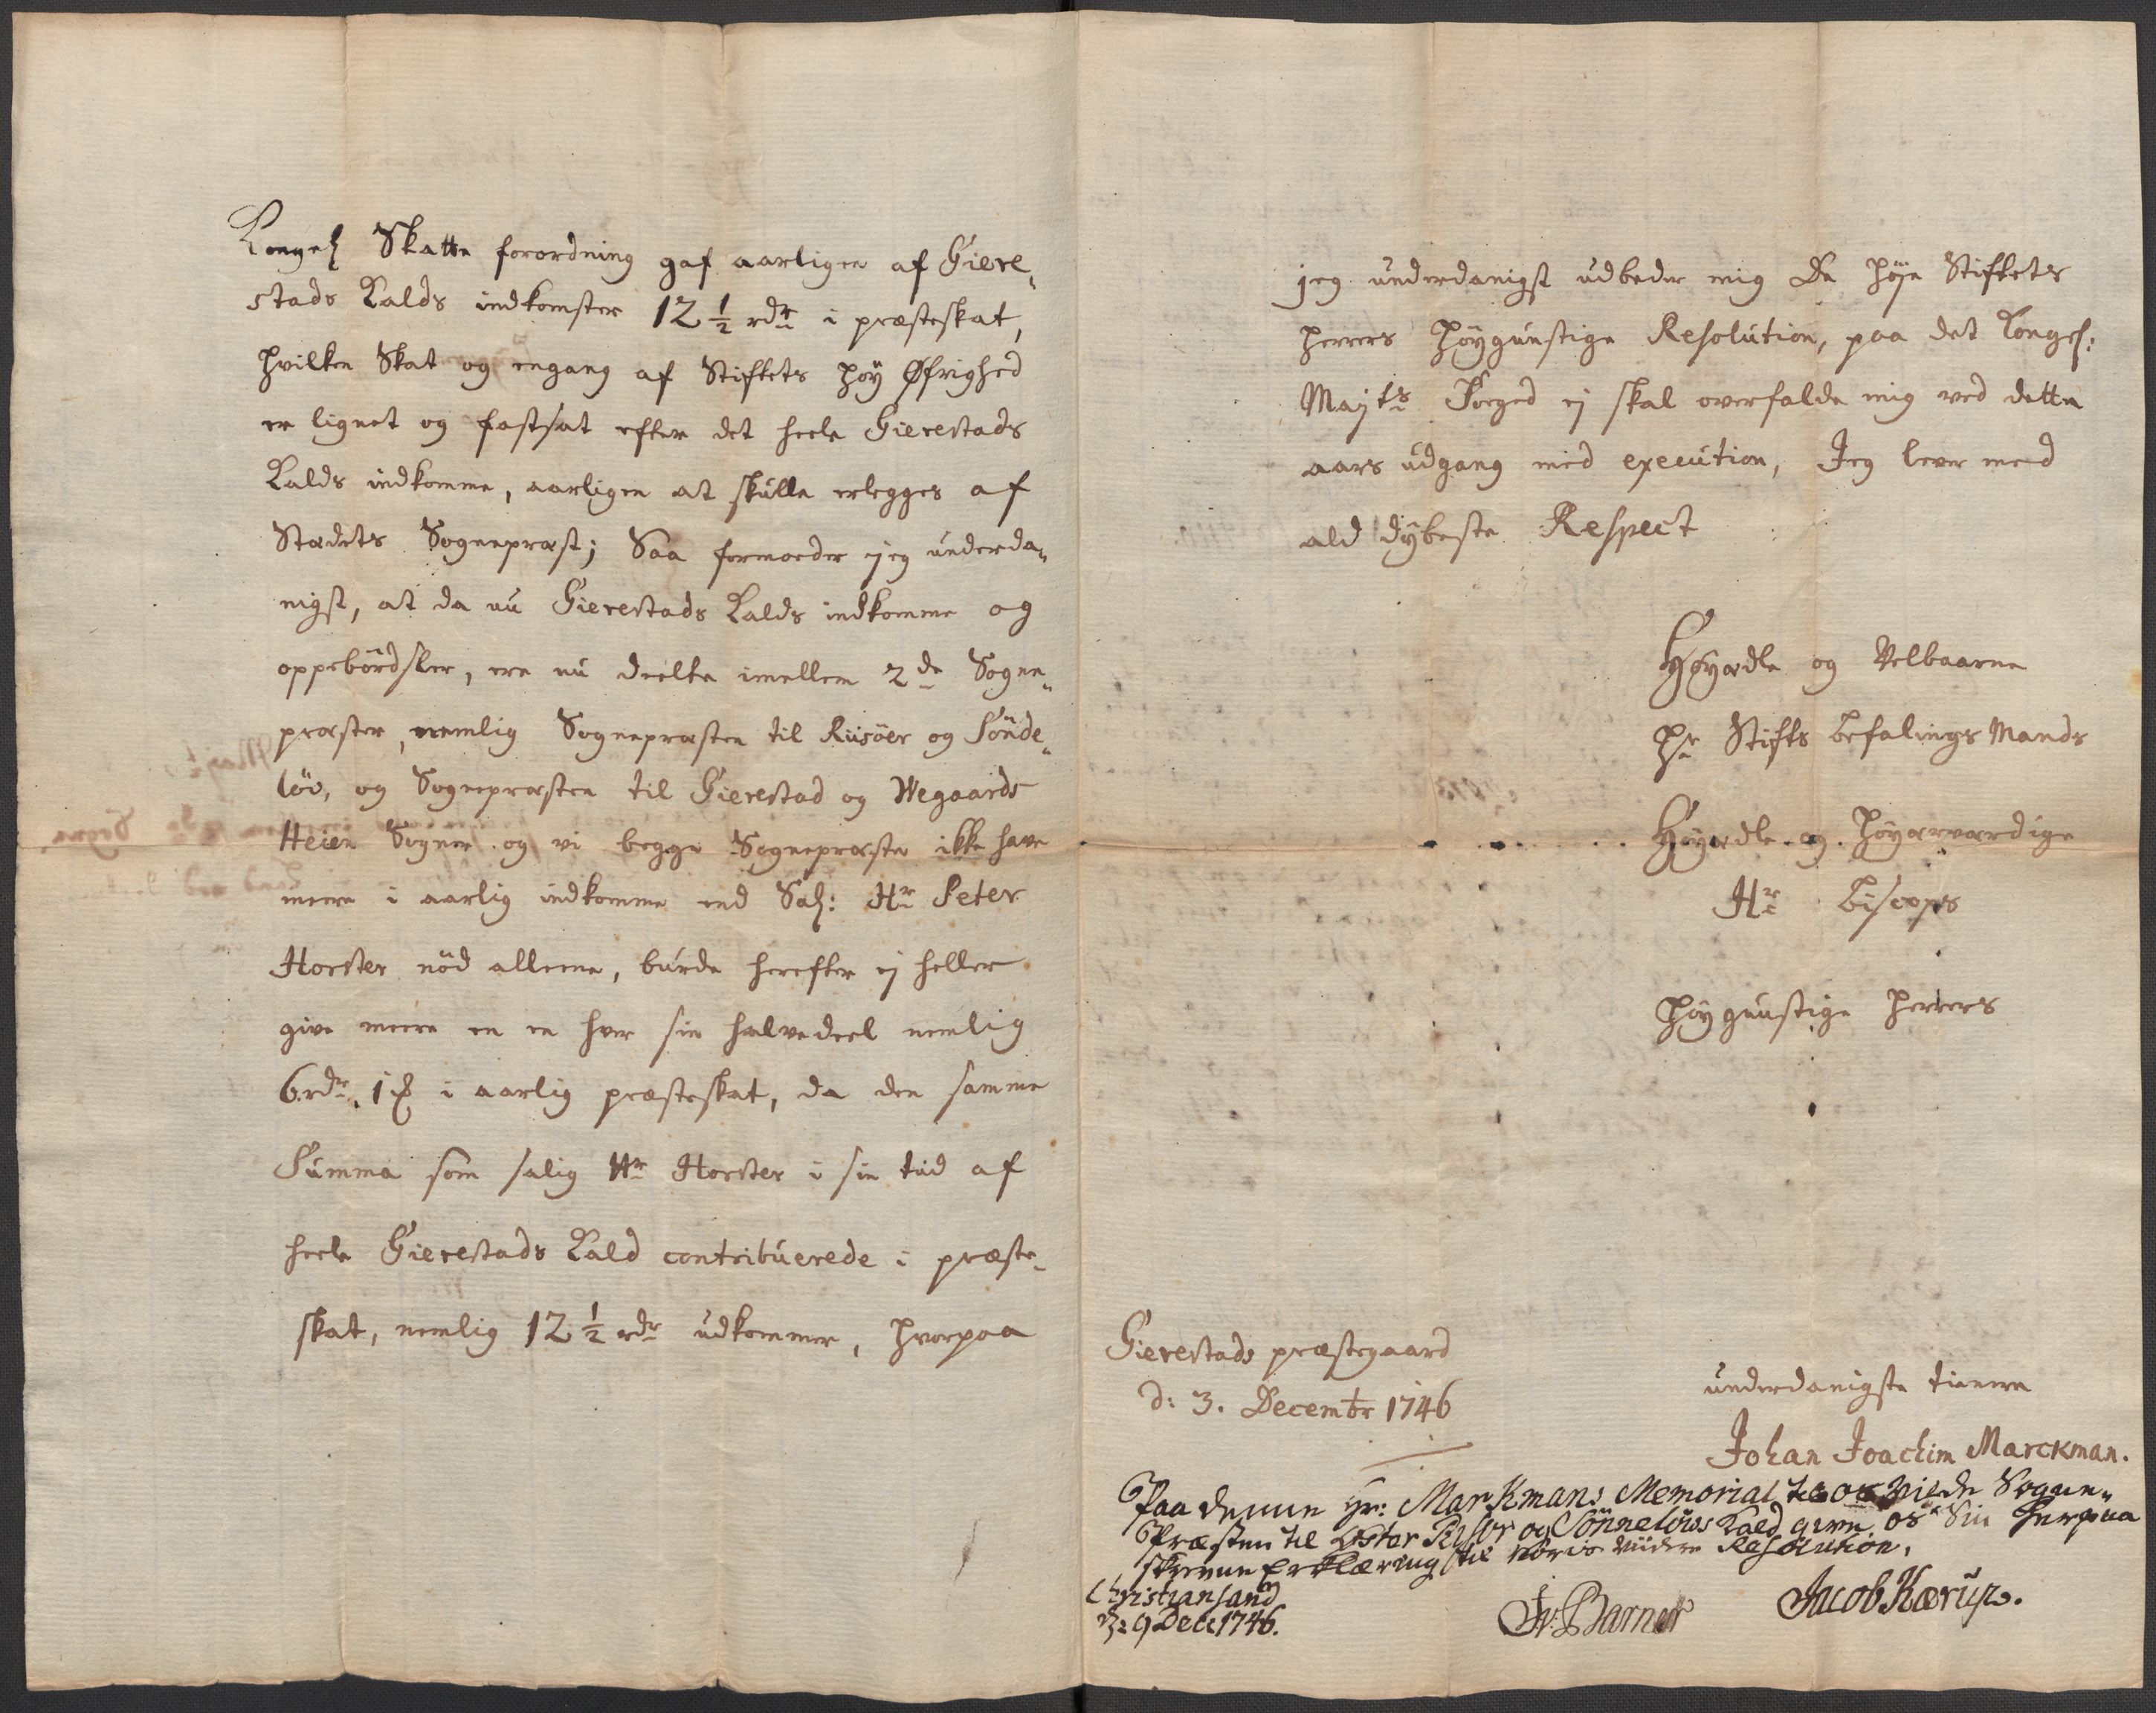 Kongel Skatte forordning gaf aarligen af Giere„
stads Kalds indkomster 12 1/2 rdr i præsteskat,
hvilken Skat og engang af Stiftets høy Øfrighed
er lignet og fastsat efter det heele Gierestads
Kalds indkomme, aarligen at skulle erlegges af
Stædets Sognepræst; Saa formoeder jeg underda„
nigst, at da nu Gierestads Kalds indkomme og
oppebördsler, ere nu deelte imellem 2de Sogne„
præster, nemlig Sognepræsten til Riisöer og Sönde„
löv, og Sognepræsten til Gierestad og Wegaards
Heien Sogner og vi begge Sognepræster ikke have
meere i aarlig indkomme end Sal: Hr Peter
Horster nöd alleene, burde herefter ej heller
give meere en en hver sin halvedeel nemlig
6 rdr. 1 i aarlig præsteskat, da den samme
Summa som salig Hr Horster i sin tiid af
heele Gierestads Kald contribuerede i præste„
skat, nemlig 12 1/2 rdr udkommer, hvorpaa
jeg underdanigst udbeder mig De höje Stiftets
Herrers Höygunstige Resolution, paa det Kongel:
Majts Foged ej skal overfalde mig ved dette
aars udgang med execution, Jeg lever med
ald dÿbeste Respect
Höyædle og Velbaarne
Hr Stifts befalings Mands
Höyædle og Höyærværdige
Hr Biscops
Höygunstige Herrers
Gierestads præstegaard
d: 3. Decembr 1746
underdanigste tienere
Johan Joachim Marckman.
Paa denne Hr: Markmans Memorial Sogne„
Præsten til Öster Riisör og Sönnelöws Kald give os Sin herpaa
skrevne Erklæring til voris viidere Resolution.
Christiansand
d: 9 Dec 1746.
Jv. Barner Jacob Kærup.